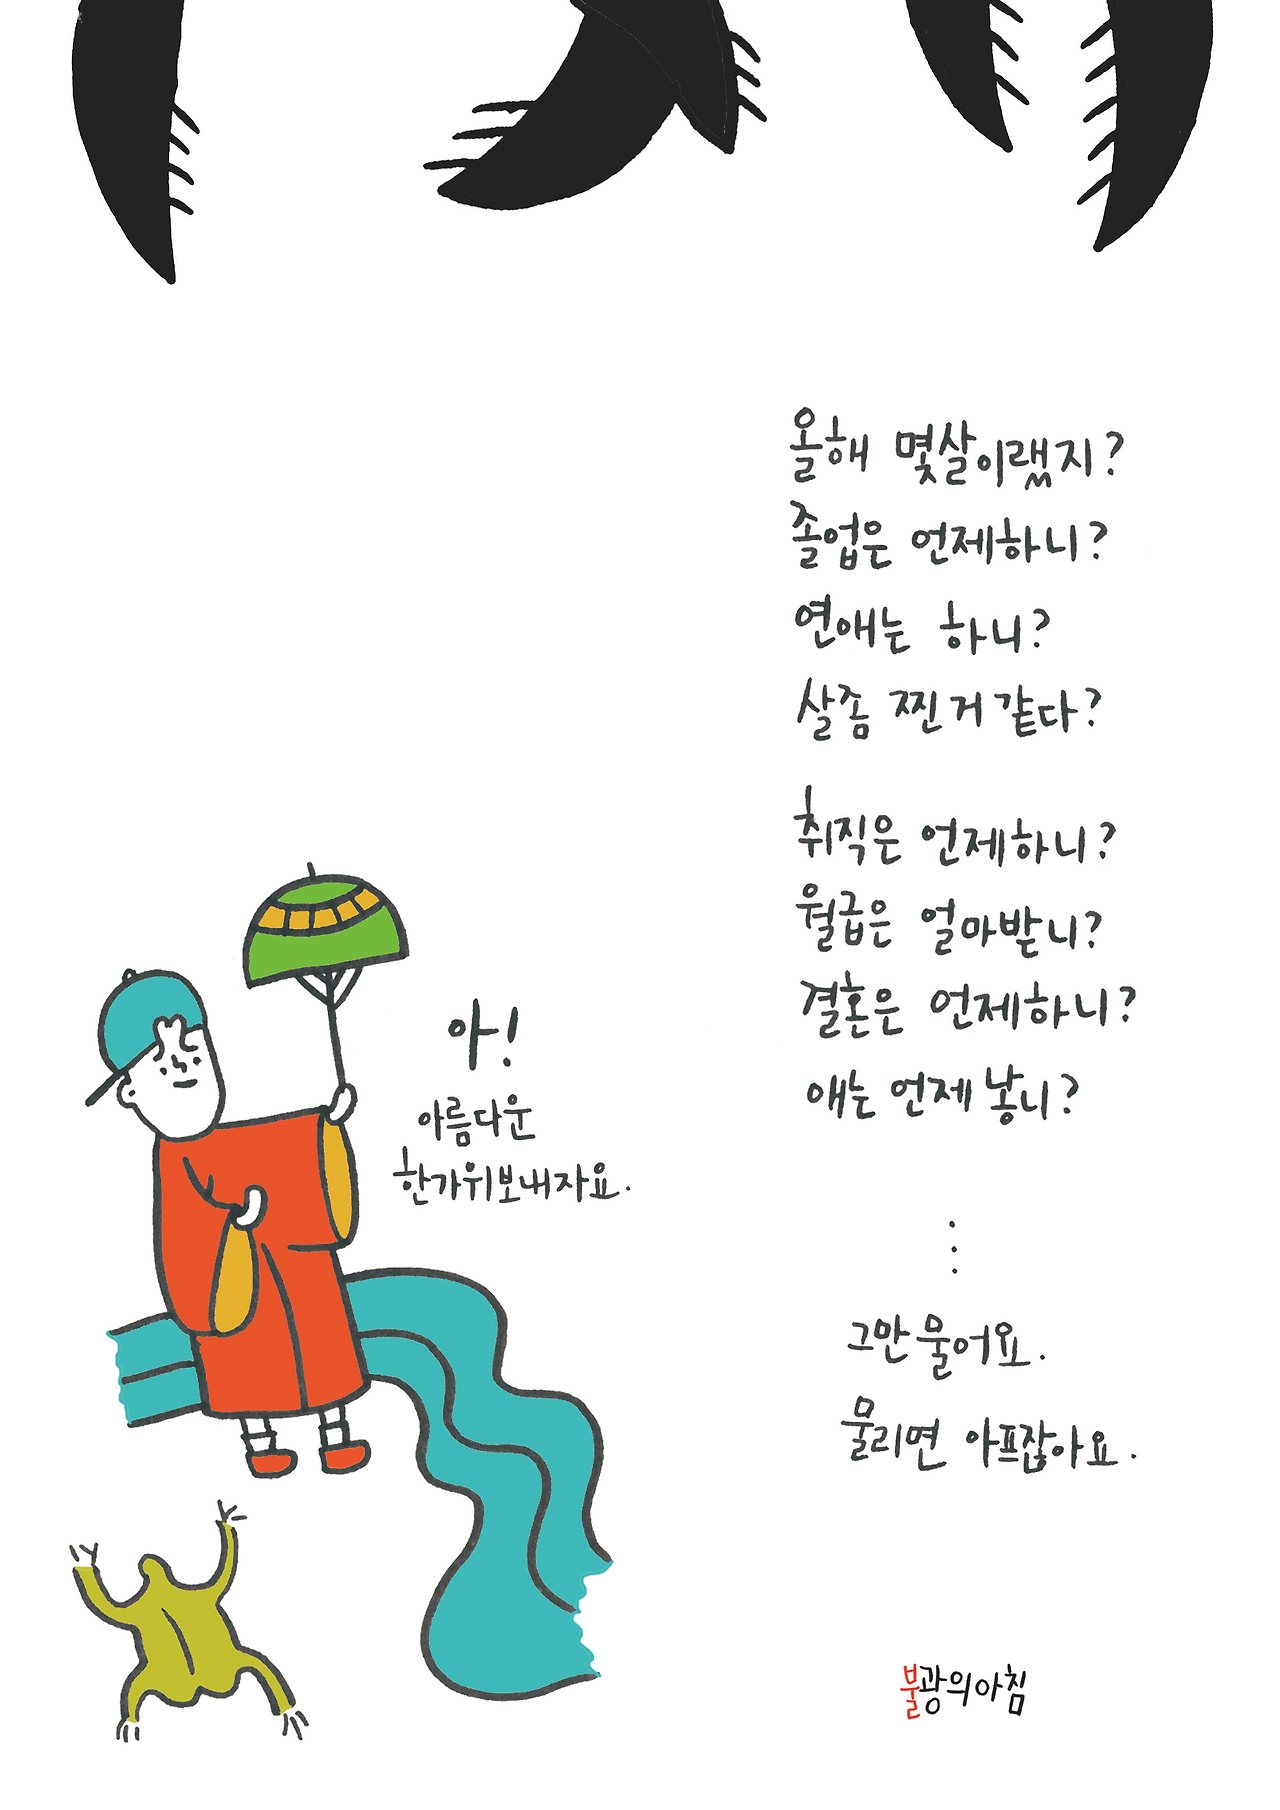 올해 몇살이랬지?
졸업은 언제하니?
연애는 하니?
살좀 찐거 같다?
취직은 언제하니?
월급은 얼마받니?
결혼은 언제하니?
애는 언제 낳니?
⋮
그만 물어요.
물리면 아프잖아요.
아!
아름다운
한가위보내자요.
불광의아침